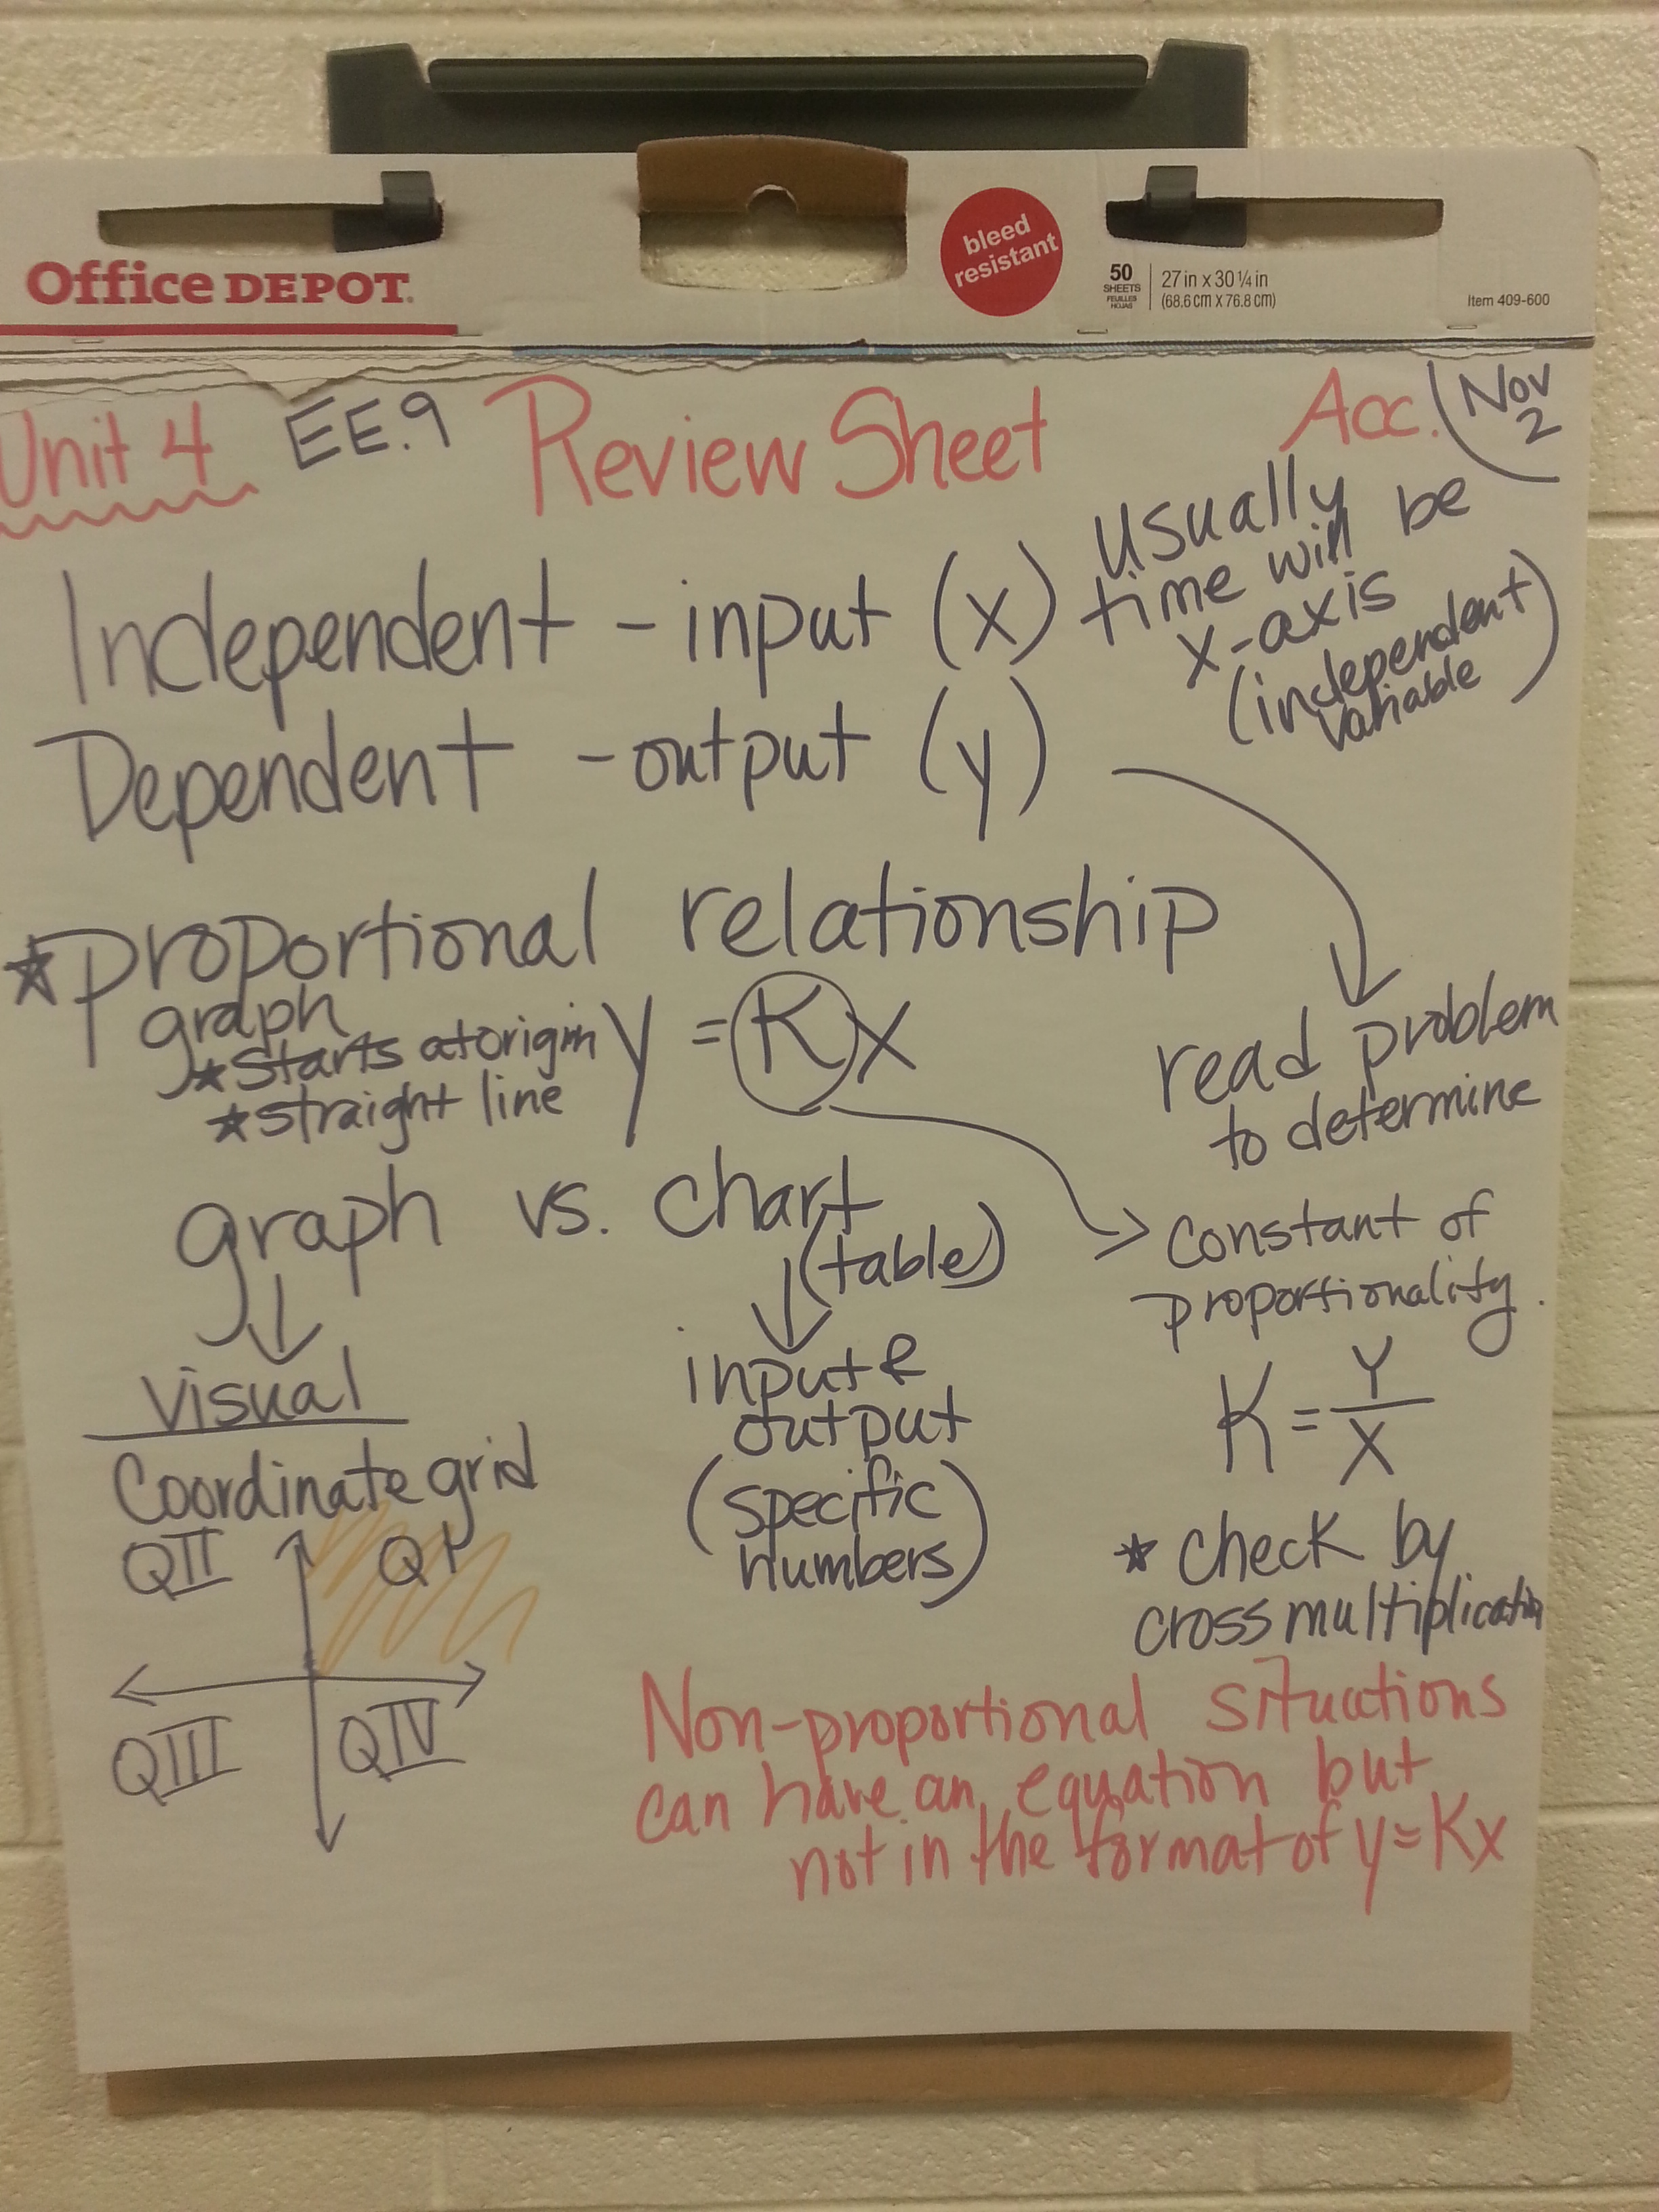 Office DEPOT.
bleed
resistant
50
SHEETS
FEUILLES
HOJAS
27 in x 30 1/4 in
(68.6 cm X 76.8 cm)
Item 409-600
Unit 4 EE.9 Review Sheet Acc. Nov
2
Independent - input (x)
Usually
time will be
x-axis
(independent
variable)
Dependent - output (y)
read problem
to determine
Proportional relationship
graph
starts at origin
straight line
y = Kx
constant of
proportionality.
K = Y/X
check by
cross multiplication
graph vs. chart
(table)
visual
Coordinate grid
QII QI
QIII QIV
input &
output
(specific
numbers)
Non-proportional situations
can have an equation but
not in the format of y=Kx